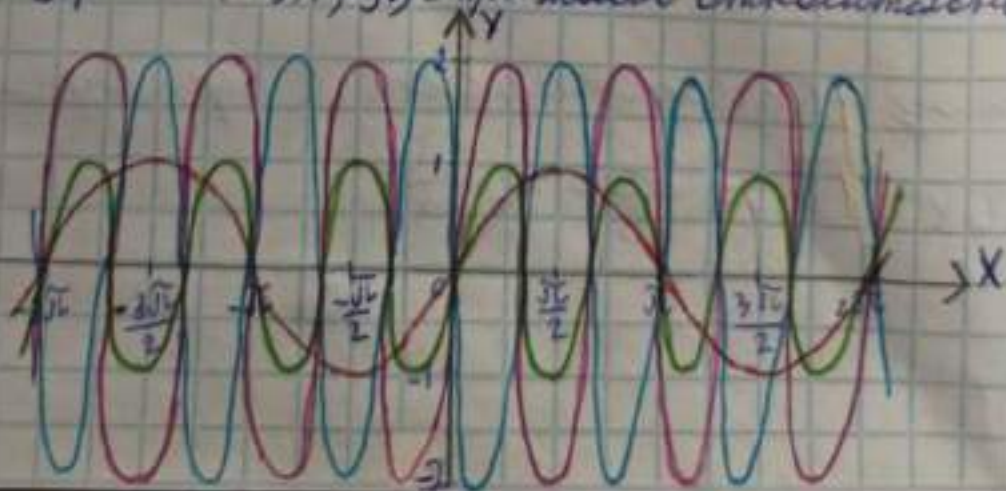 Y
2
1
X
-2π -3π/2 -π -π/2 0 π/2 π 3π/2 2π
-1
-2